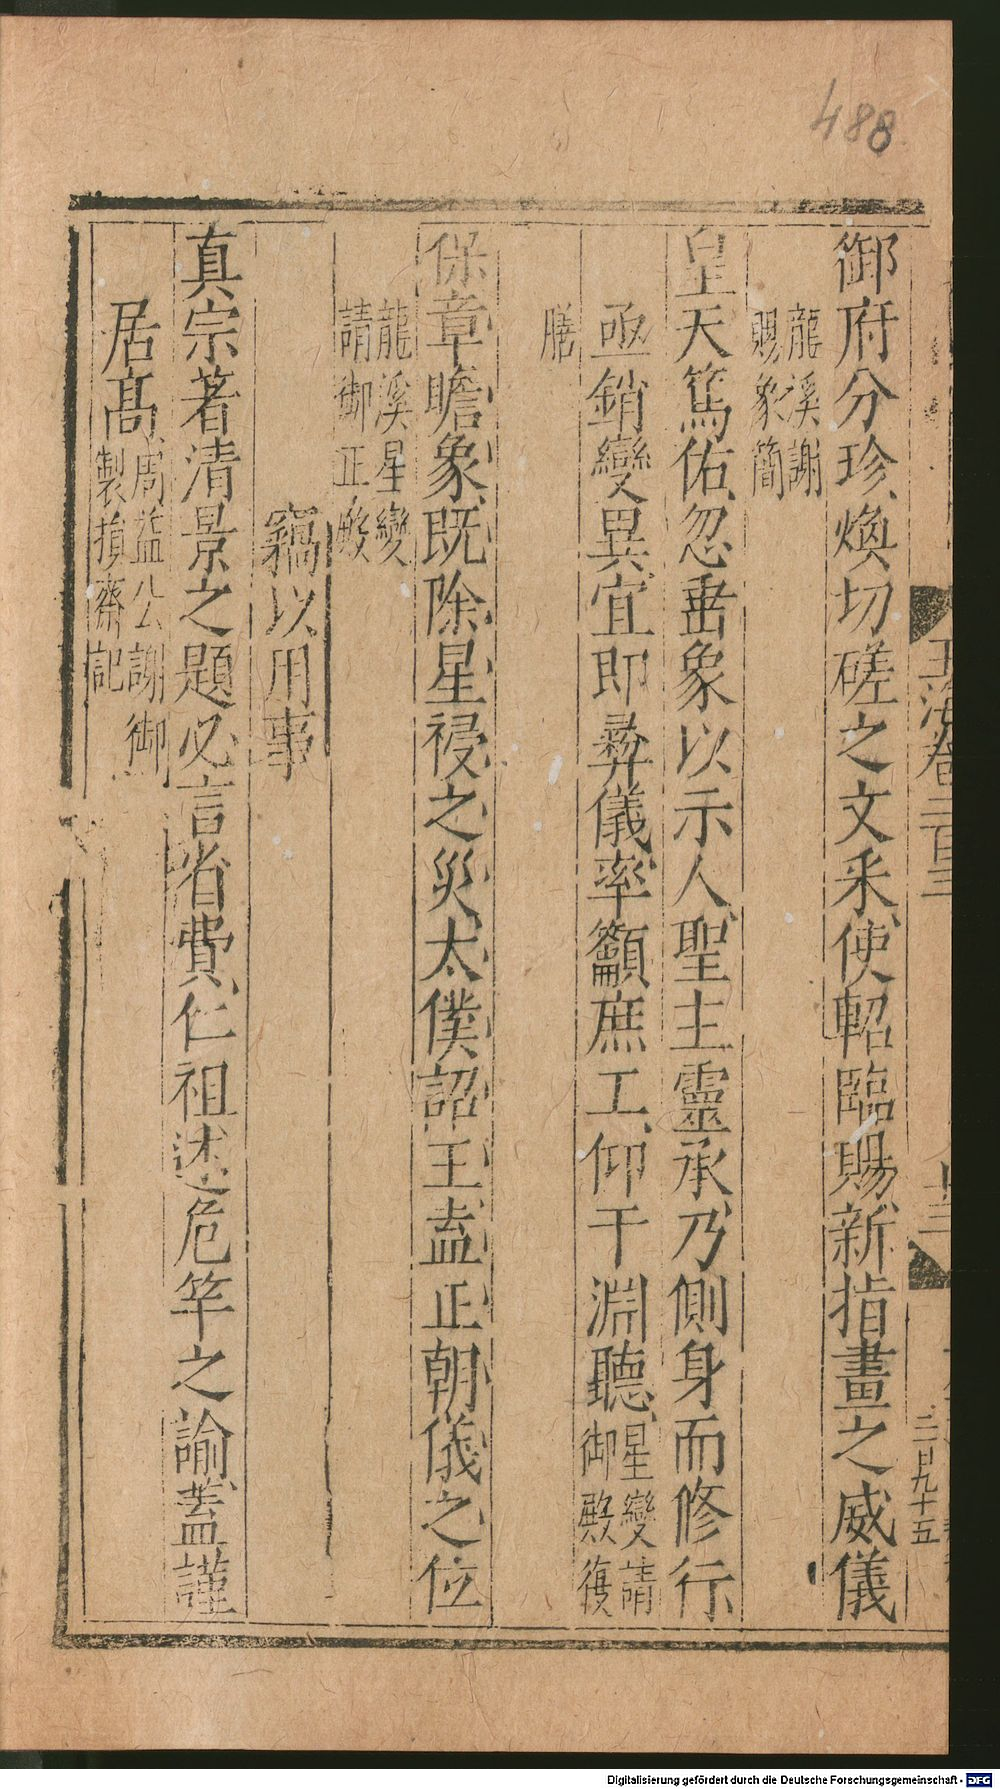 488
玉海卷二百三
二月九十五
御府分珍煥切磋之文釆使軺臨賜新指畫之威儀
龍溪謝
賜象簡
皇天篤佑忽垂象以示人聖主靈承乃側身而修行
亟銷變異宜即彝儀率籲庶工仰干淵聽
星變請
御殿復
膳
保章瞻象既除星祲之災太僕詔王盍正朝儀之位
龍溪星變
請御正殿
竊以用事
真宗著清景之題必言省費仁祖述危竿之諭蓋謹
居髙
周益公謝御
製損齋記
Digitalisierung gefördert durch die Deutsche Forschungsgemeinschaft - DFG